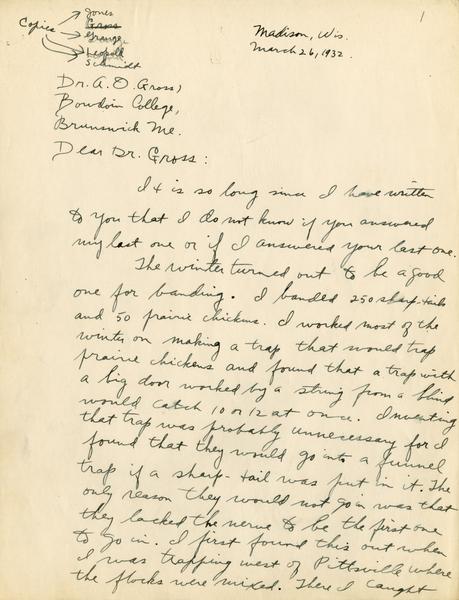 1
Copies
Jones
Gross
Grange
Leopold
Schmidt
Madison, Wis.
March 26, 1932.
Dr. A. O. Gross,
Bowdoin College,
Brunswick Me.
Dear Dr. Gross:
It is so long since I have written
to you that I do not know if you answered
my last one or if I answered your last one.
The winter turned out to be a good
one for banding. I banded 250 sharp-tails
and 50 prairie chickens. I worked most of the
winter on making a trap that would trap
prairie chickens and found that a trap with
a big door worked by a string from a blind
would catch 10 or 12 at once. Inventing
that trap was probably unnecessary for I
found that they would go into a funnel
trap if a sharp-tail was put in it. The
only reason they would not go in was that
they lacked the nerve to be the first one
to go in. I first found this out when
I was trapping west of Pittsville where
the flocks were mixed. There I caught